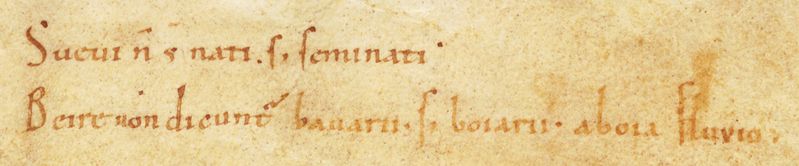 Suevi n̄ s nati. s; seminati
Beire non dicunt᷑ bavarii. s; boiarii. a boia fluvio.